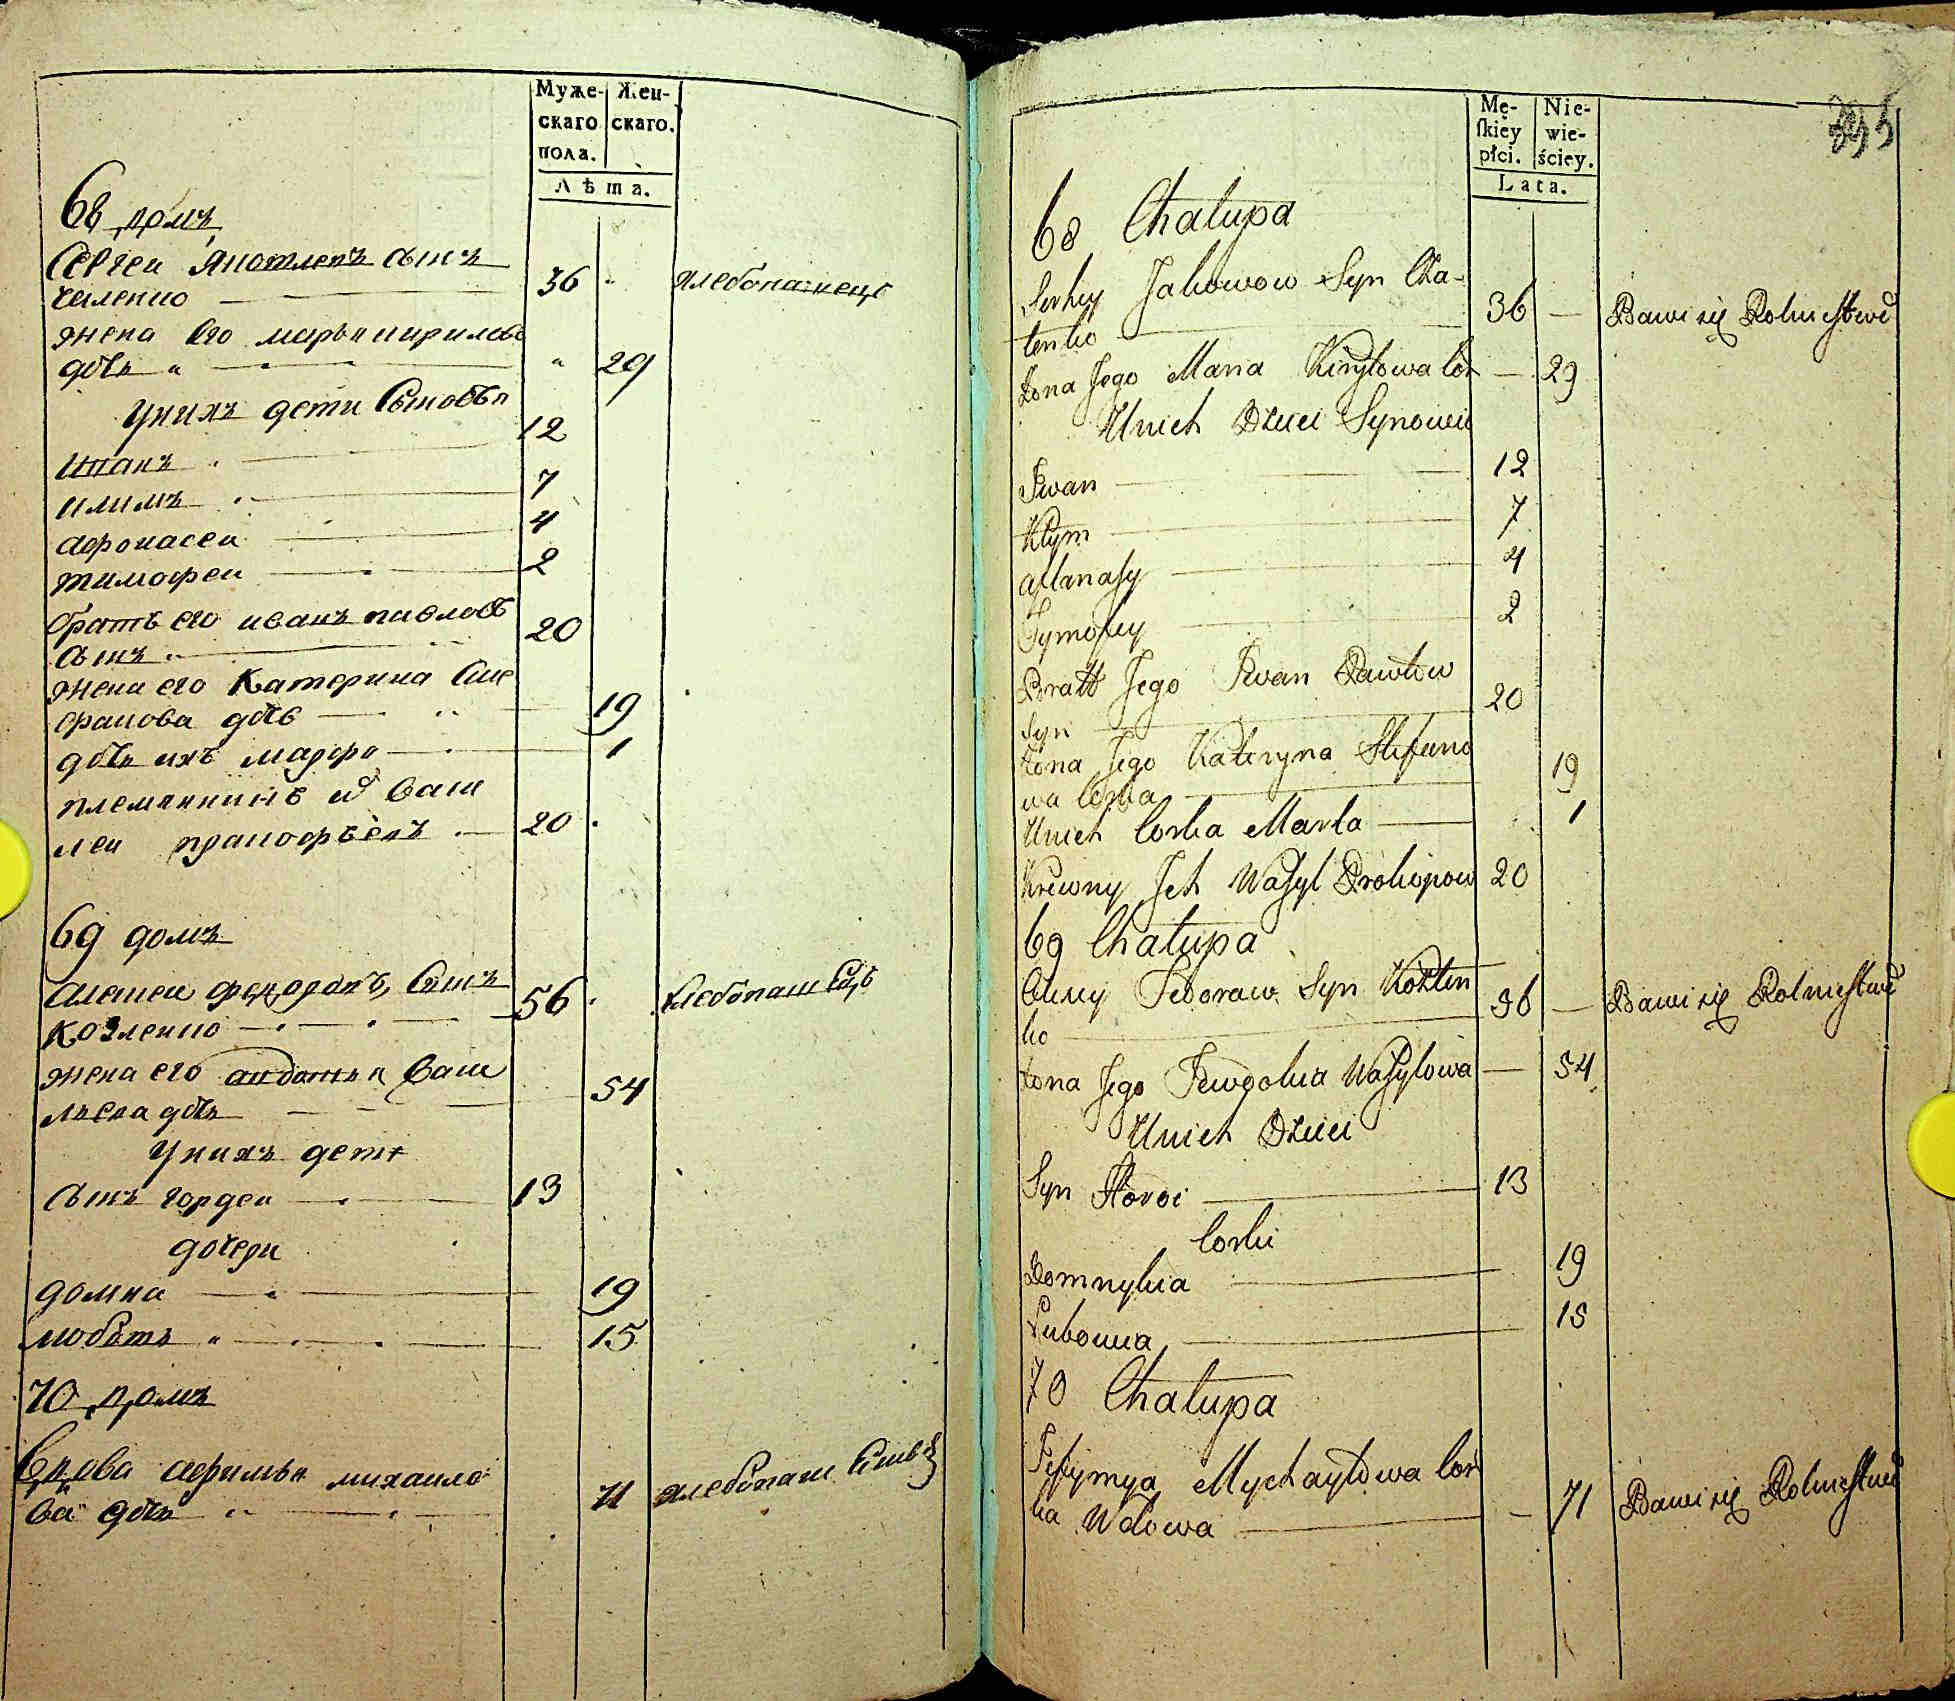 Муже-
скаго
пола.
Жен-
скаго.
Лѣта.
68 домъ
Сергеи Яковлевъ сынъ 36 хлебопашецъ
чаленко
жена его марья кирилова
дочь 29
У нихъ дети Сыновья
Иванъ 12
климъ 7
афонасеи 4
тимофеи 2
братъ его иванъ павловъ
сынъ 20
жена его Катерина Сте
фанова дочь 19
дочь ихъ марфа 1
племянникъ Васи
леи прокофьевъ 20
69 домъ
Алексеи федоровъ Сынъ 56 хлебопашецъ
Козленко
жена его авдотья Васи
льева дочь 54
У нихъ дети
сынъ гордеи 13
дочери
домна 19
любовь 15
70 домъ
Вдова афимья михаило
ва дочь 71 хлебопаш
Mę-
skiey
płci.
Nie-
wie-
ściey.
Lata.
68 Chalupa
Serhey Jakowow Syn Cza-
lenko 36 — Bawi się Rolnictwē
Żona Jego Maria Kiryłowa Cor — 29
Unich Dzieci Synowie
Iwan 12
Kłym 7
Aftanasy 4
Tymofiey 2
Bratt Jego Iwan Pawłow
Syn 20
Żona Jego Kateryna Stefano
wa Corka 19
Unich Corka Marta 1
Krewny Jch Wasyl Prokopow 20
69 Chałupa
Alexey Fedoraw Syn Kozlen
ko 56 — Bawi się Rolnictwē
Żona Jego Jewdokia Wasylowa — 54
Unich Dzieci
Syn Hordi 13
Corki
Domnykia 19
Lubowia 15
70 Chalupa
Jefymya Mychayłowa Cor
ka Wdowa — 71 Bawi się Rolnictwē